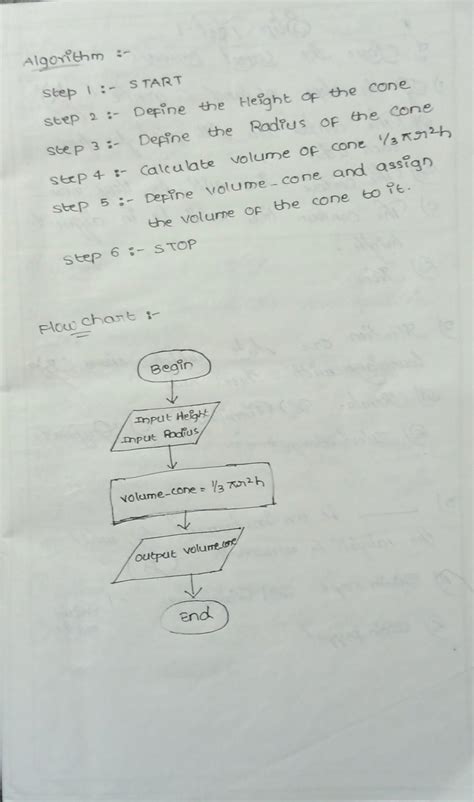 Algorithm :-
Step 1 :- START
Step 2 :- Define the Height of the cone
Step 3 :- Define the Radius of the cone
Step 4 :- Calculate volume of cone 1/3 πr²h
Step 5 :- Define volume-cone and assign
the volume of the cone to it.
Step 6 :- STOP
Flow chart :-
Begin
Input Height
Input Radius
volume-cone = 1/3 πr²h
output volume-cone
End